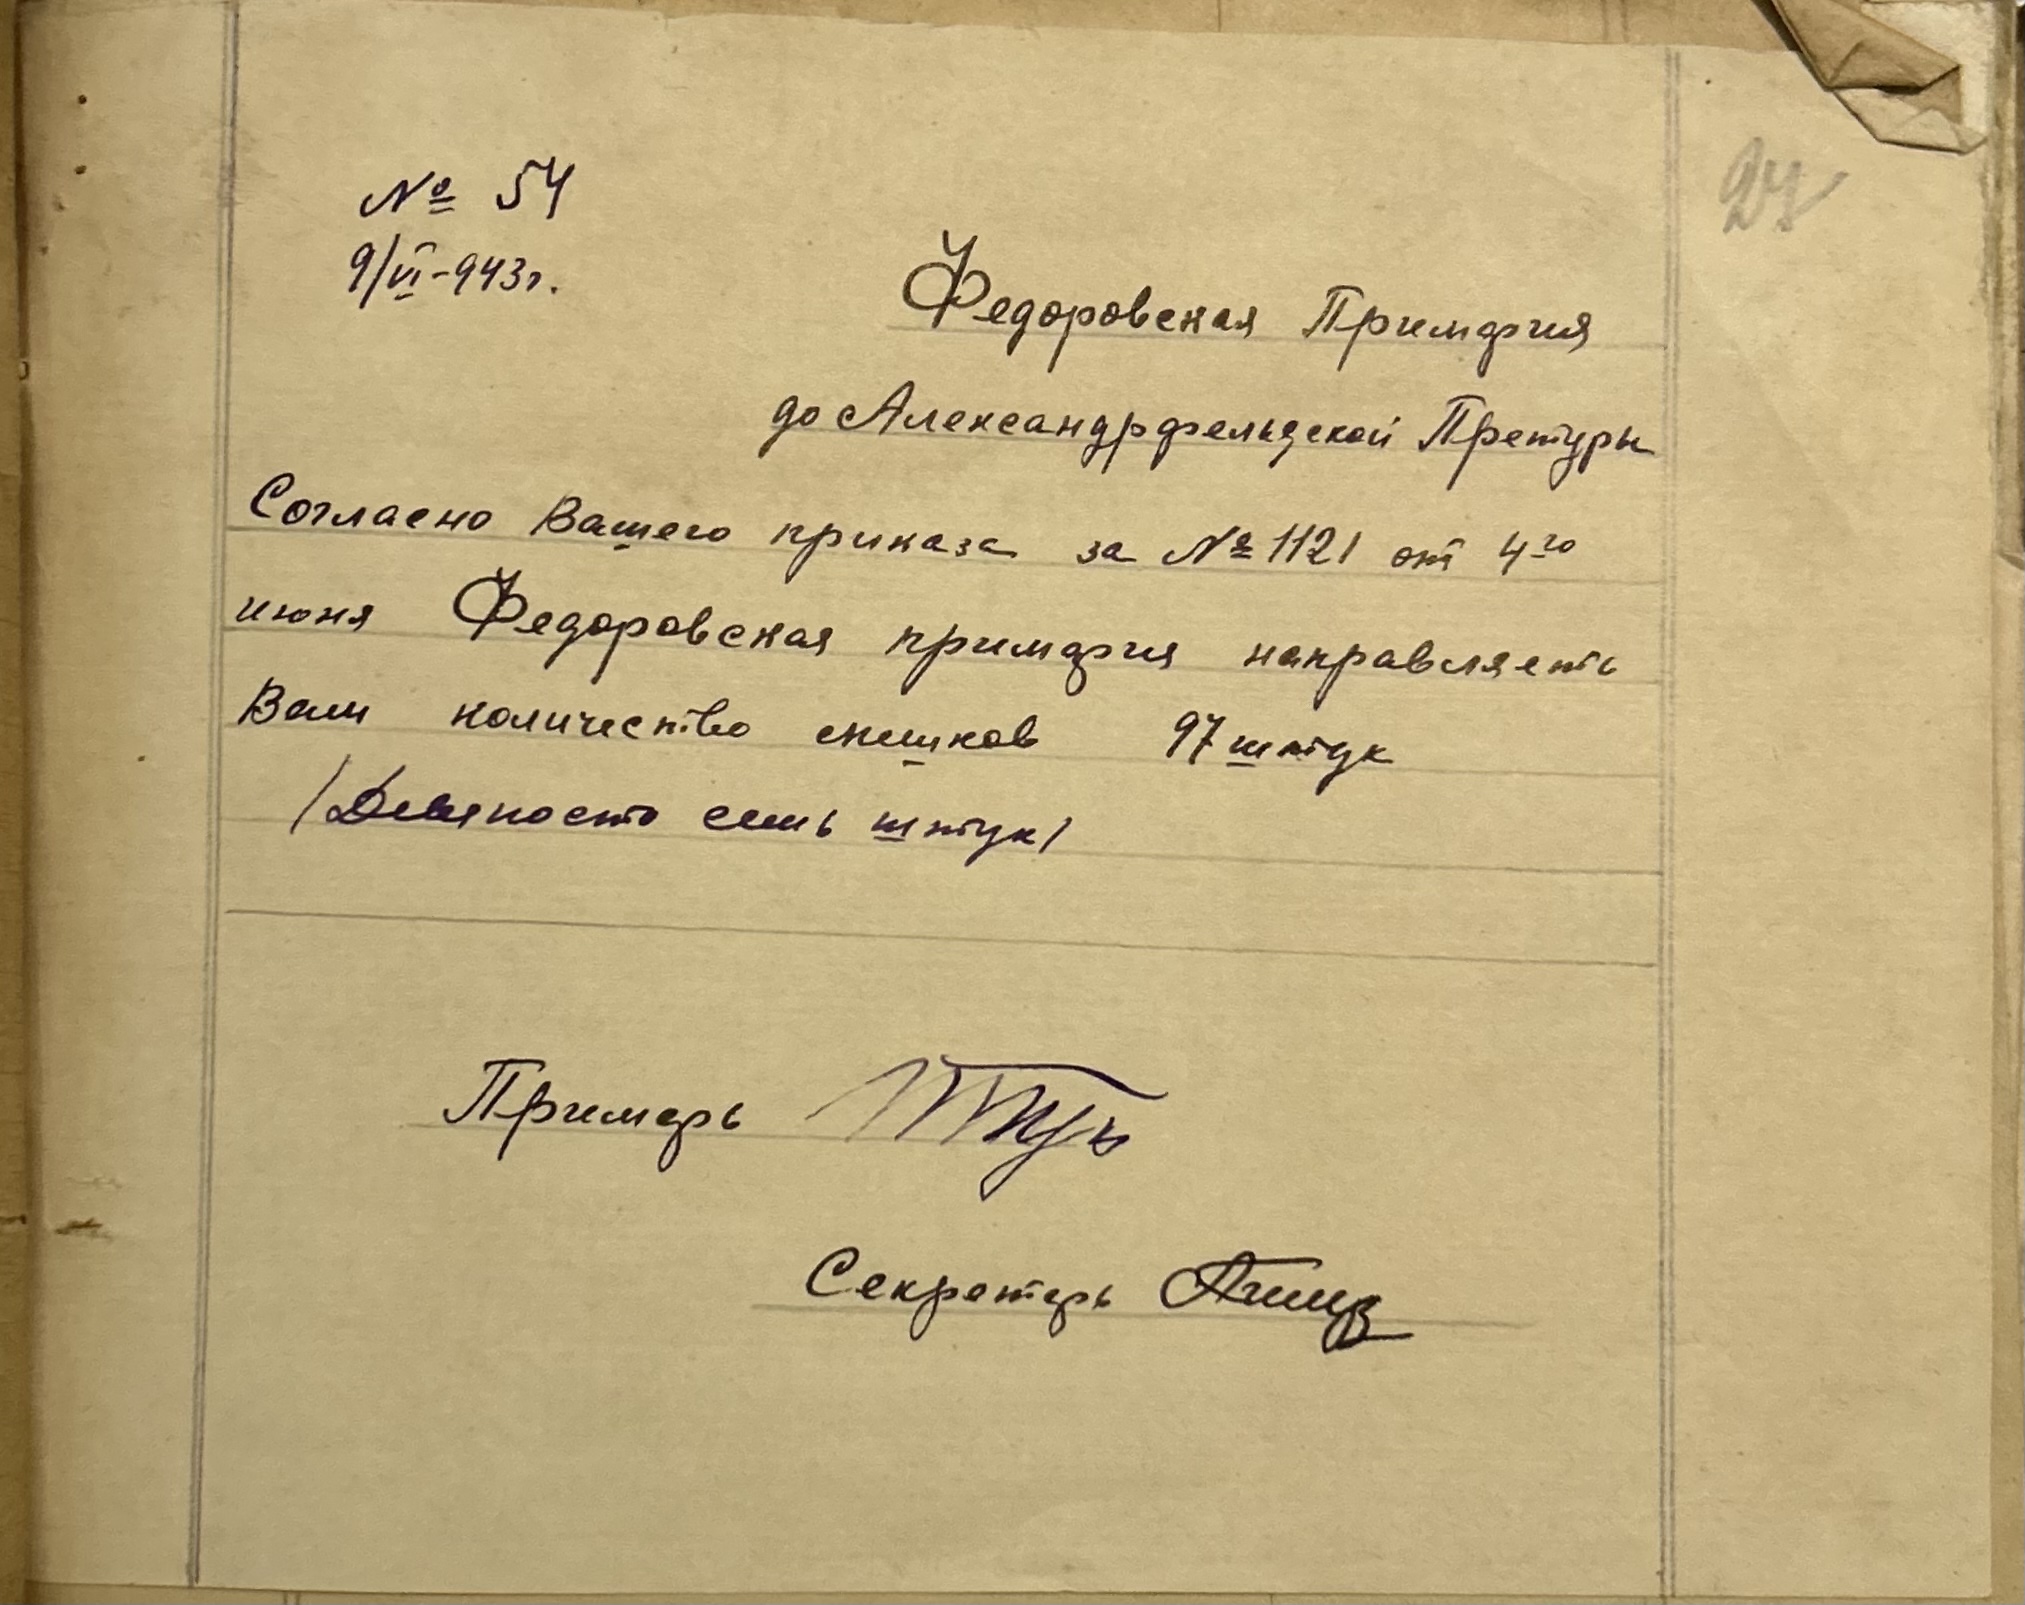 № 54
27
9/VI-943г.
Федоровская Примария
до Александрфельдской Претуры
Согласно Вашего приказа за № 1121 от 4го
июня Федоровская примария направляеть
Вам количество мешков 97 штук
/Девяносто семь штук/
Примарь
Секретарь